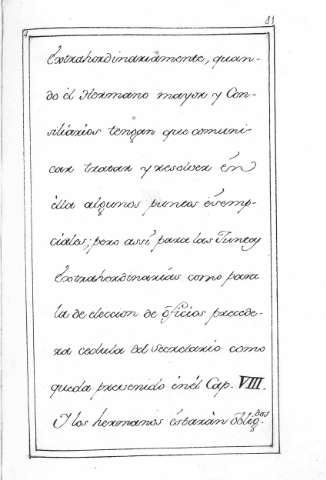 81
Extrahordinariamente, quan-
do él Hermano mayor y Con-
siliarios tengan que comuni-
car tratar y resolver én
élla algunos puntos ésemp-
ciales; pero assi para las Juntas
Extrahordinarias como para
la de eleccion de óficios precede-
ra cedula del Secretario como
queda prevenido énél Cap. VIII.
Y los hermanos éstaràn óblig.dos